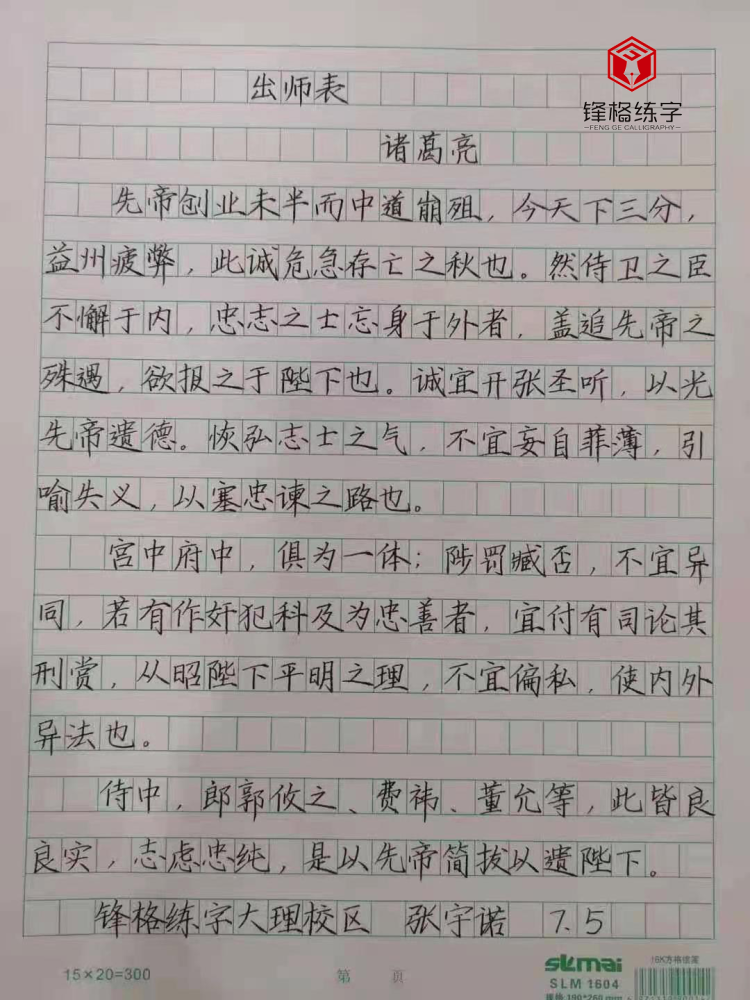 锋格练字
FENG GE CALLIGRAPHY
出师表
诸葛亮
先帝创业未半而中道崩殂，今天下三分，
益州疲弊，此诚危急存亡之秋也。然侍卫之臣
不懈于内，忠志之士忘身于外者，盖追先帝之
殊遇，欲报之于陛下也。诚宜开张圣听，以光
先帝遗德。恢弘志士之气，不宜妄自菲薄，引
喻失义，以塞忠谏之路也。
宫中府中，俱为一体；陟罚臧否，不宜异
同，若有作奸犯科及为忠善者，宜付有司论其
刑赏，从昭陛下平明之理，不宜偏私，使内外
异法也。
侍中，郎郭攸之、费祎、董允等，此皆良
良实，志虑忠纯，是以先帝简拔以遗陛下。
锋格练字大理校区 张宇诺 7.5
15×20=300 第 页
slkmai
SLM 1604
16K方格信笺
规格:190*260mm